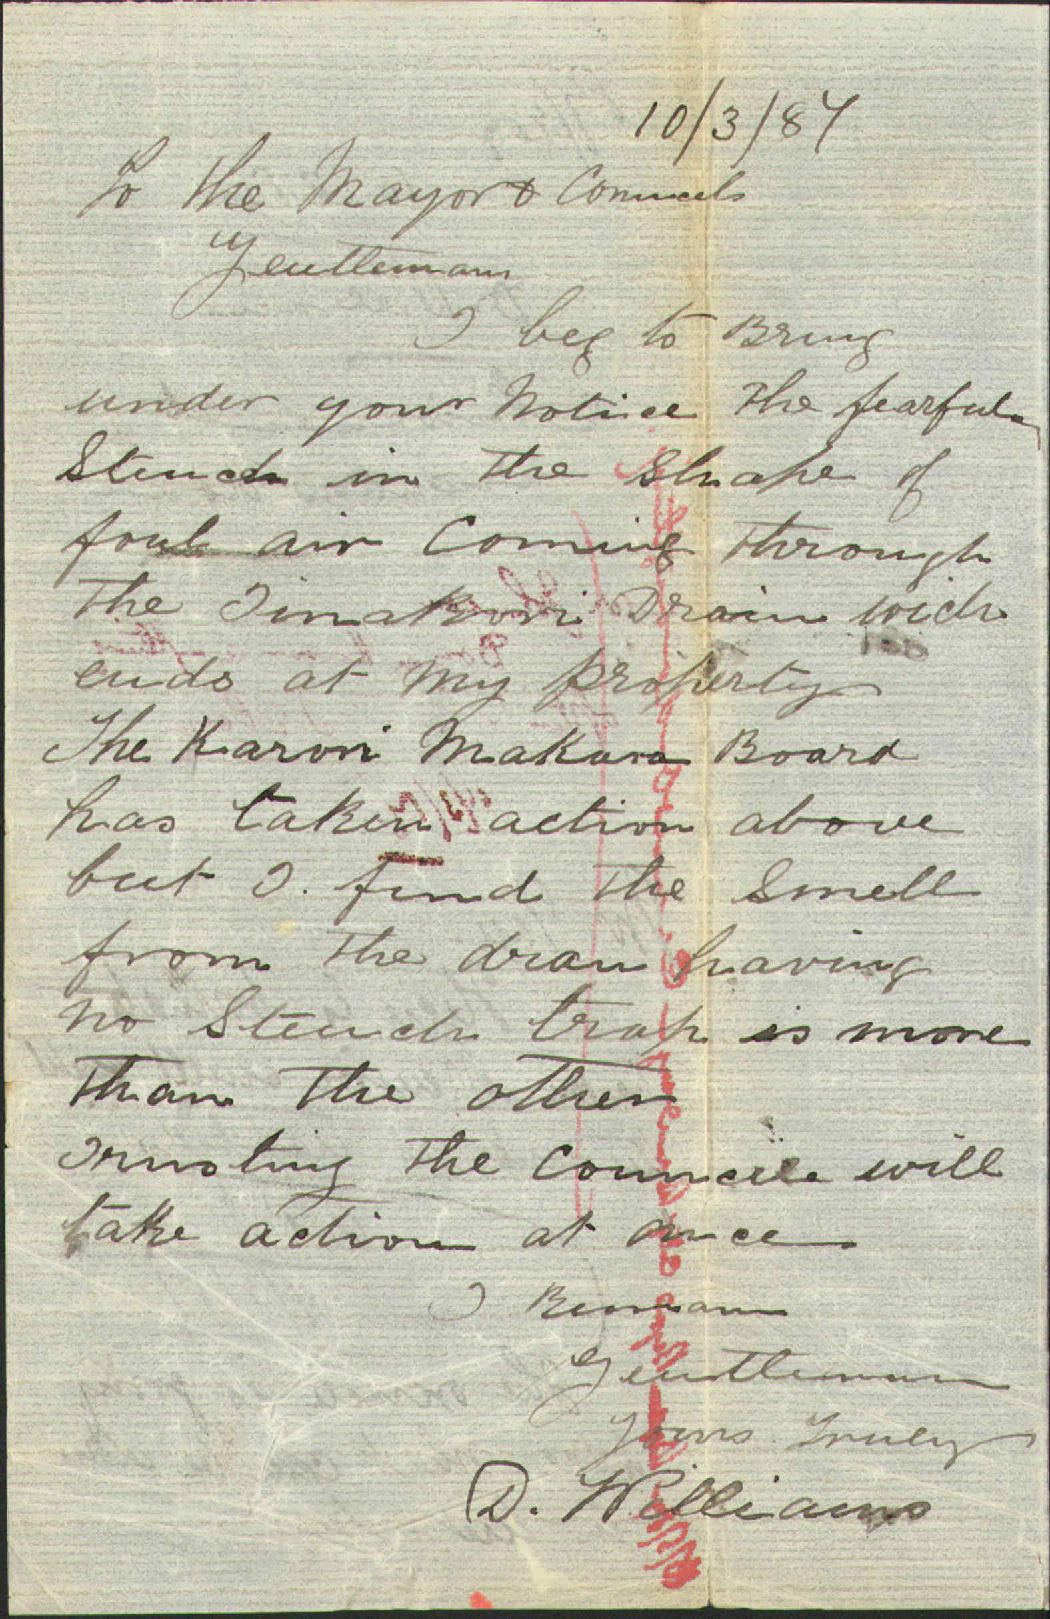 10/3/87
To the Mayor & Councels
Gentleman
I beg to Bring
under your Notice the fearful
Stench in the Shape of
foul air Coming through
the Tinakori Drain wich
ends at My property
The Karori Makara Board
has taken action above
but I. find the Smell
from the dran having
no Stench trap is more
than the other
Trusting the Councile will
take action at once
I Remain
Gentleman
Yours Truley
D. Williams